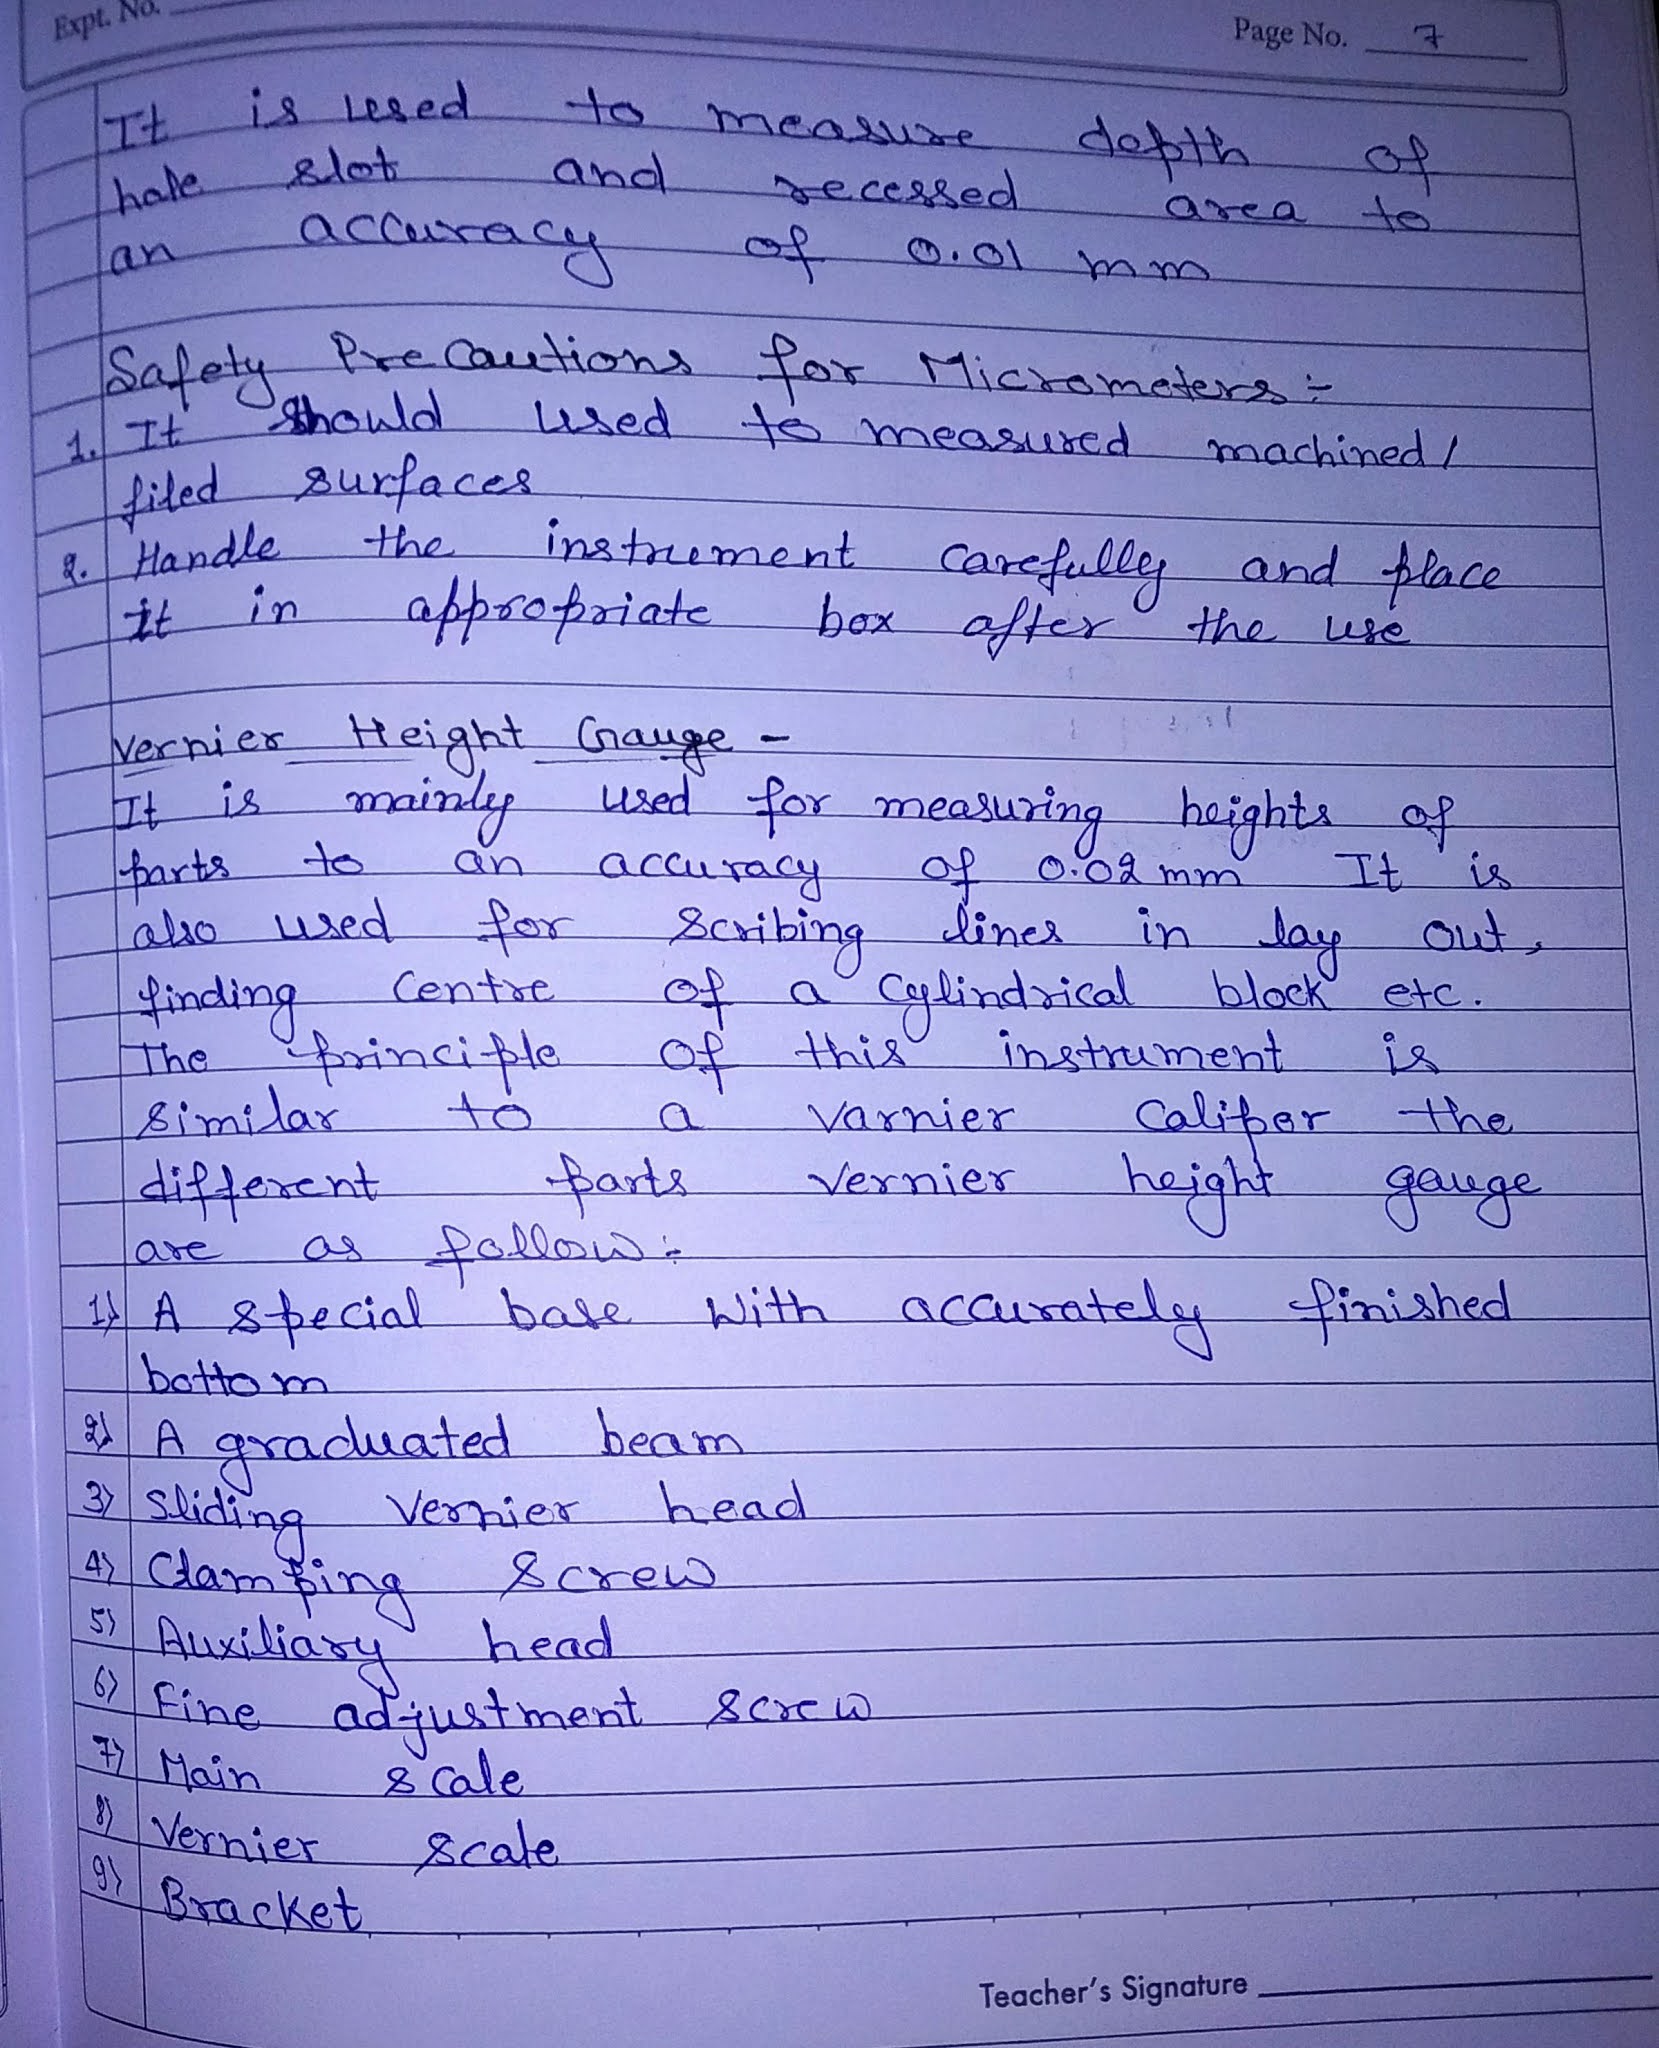 Expt. No.
Page No. 7
It is used to measure depth of
hole slot and recessed area to
an accuracy of 0.01 mm
Safety Precautions for Micrometers :-
1. It should used to measured machined /
filed surfaces
2. Handle the instrument carefully and place
it in appropriate box after the use
Vernier Height Gauge -
It is mainly used for measuring heights of
parts to an accuracy of 0.02 mm It is
also used for scribing lines in lay out,
finding centre of a cylindrical block etc.
The principle of this instrument is
similar to a varnier caliper the
different parts vernier height gauge
are as follow :-
1) A special base with accurately finished
bottom
2) A graduated beam
3) Sliding Vernier head
4) Clamping screw
5) Auxiliary head
6) Fine adjustment screw
7) Main scale
8) Vernier scale
9) Bracket
Teacher's Signature